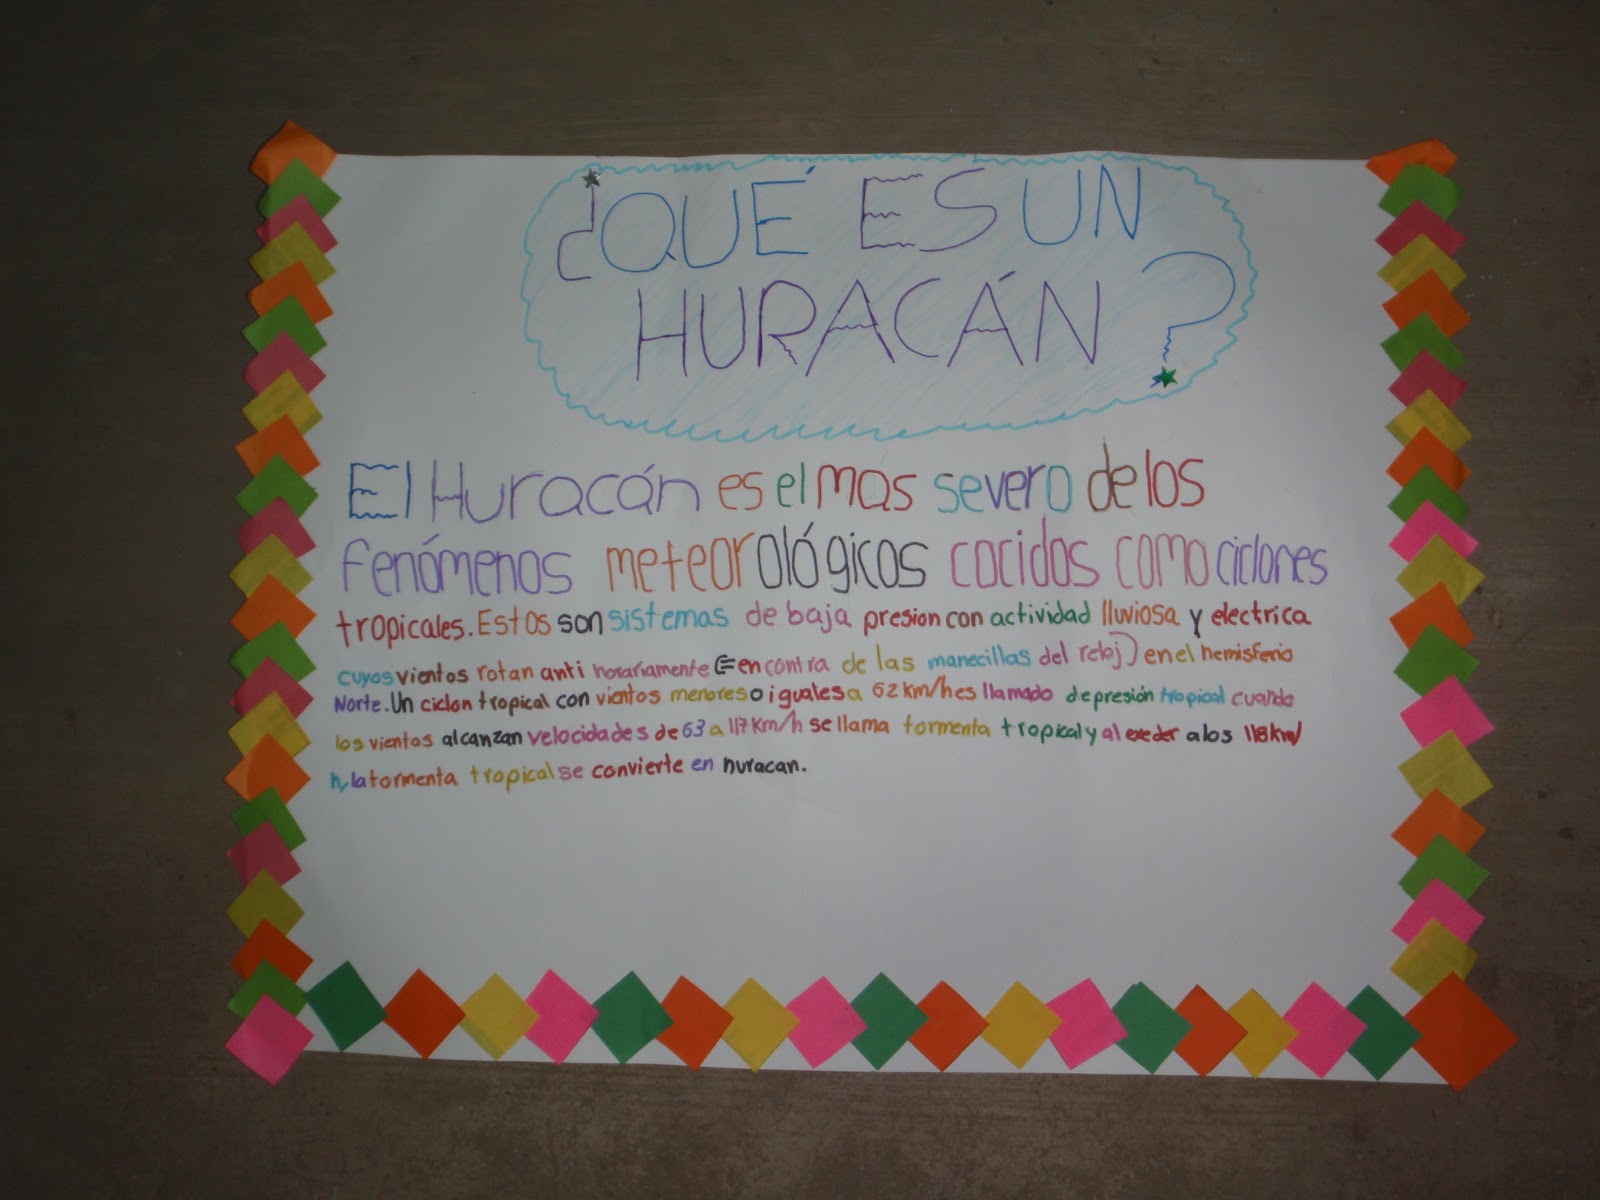 ¿QUÉ ES UN
HURACÁN?
El Huracán es el mas severo de los
fenómenos meteorológicos cocidos como ciclones
tropicales. Estos son sistemas de baja presion con actividad lluviosa y electrica
cuyos vientos rotan anti horariamente (=en contra de las manecillas del reloj) en el hemisferio
Norte. Un ciclon tropical con vientos menores o iguales a 62 km/h es llamado depresión tropical cuando
los vientos alcanzan velocidades de 63 a 117 km/h se llama tormenta tropical y al exeder a los 118 km/
h, la tormenta tropical se convierte en huracan.